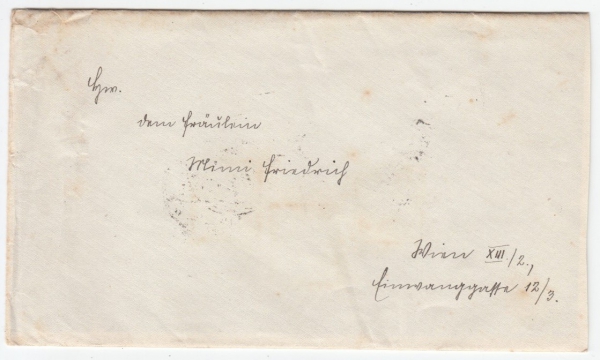 Hw.
dem Fräulein
Mimi Friedrich
Wien XIII/2.,
Einwanggasse 12/3.